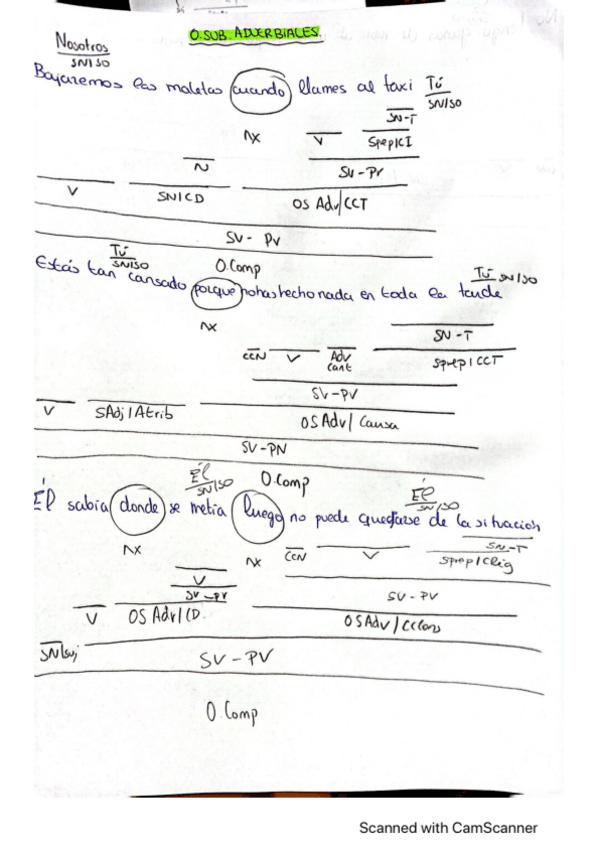 O.SUB. ADVERBIALES.
Nosotros
SN/SO
Bajaremos las maletas cuando llames al taxi Tú
SN/SO
SN-T
NX V Sprep/CI
N SV-Pr
V SN/CD OS Adv/CCT
SV- PV
O.Comp
Tú Tú SN/SO
SN/SO
Estás tan cansado porque no has hecho nada en toda la tarde
NX SN-T
CCN V Adv Sprep/CCT
Cant
SV-PV
V SAdj/Atrib OS Adv/ Causa
SV-PN
O.Comp
Él Él
SN/SO SN/SO
Él sabía donde se metía luego no puede quejarse de la situación
NX NX CCN V SN-T
Sprep/CReg
V
SV-PV SV-PV
V OS Adv/CD. OSAdv/CCCons
SN/Suj SV-PV
O.Comp
Scanned with CamScanner